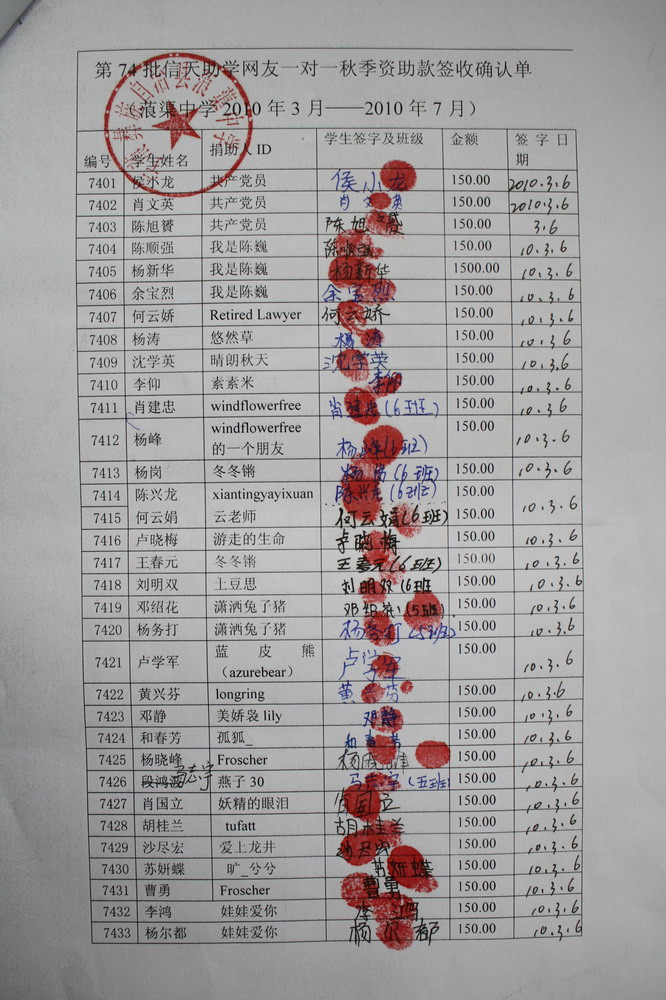 第74批信天助学网友一对一秋季资助款签收确认单
（蒗渠中学2010年3月——2010年7月）
编号 学生姓名 捐助人ID 学生签字及班级 金额 签字日期
7401 侯小龙 共产党员 侯小龙 150.00 2010.3.6
7402 肖文英 共产党员 肖文英 150.00 2010.3.6
7403 陈旭赟 共产党员 陈旭 150.00 3.6
7404 陈顺强 我是陈巍 陈顺强 150.00 10.3.6
7405 杨新华 我是陈巍 杨新华 1500.00 10.3.6
7406 余宝烈 我是陈巍 余宝烈 150.00 10.3.6
7407 何云娇 Retired Lawyer 何云娇 150.00 10.3.6
7408 杨涛 悠然草 杨涛 150.00 10.3.6
7409 沈学英 晴朗秋天 沈学英 150.00 10.3.6
7410 李仰 素素米 李仰 150.00 10.3.6
7411 肖建忠 windflowerfree 肖建忠(6班) 150.00 10.3.6
7412 杨峰 windflowerfree 的一个朋友 杨峰(6班) 150.00 10.3.6
7413 杨岗 冬冬锵 杨岗(6班) 150.00 10.3.6
7414 陈兴龙 xiantingyayixuan 陈兴龙(6班) 150.00 10.3.6
7415 何云娟 云老师 何云娟(6班) 150.00 10.3.6
7416 卢晓梅 游走的生命 卢晓梅 150.00 10.3.6
7417 王春元 冬冬锵 王春元(6班) 150.00 10.3.6
7418 刘明双 土豆思 刘明双(6班 150.00 10.3.6
7419 邓绍花 潇洒兔子猪 邓绍花(5班) 150.00 10.3.6
7420 杨务打 潇洒兔子猪 杨务打(5班) 150.00 10.3.6
7421 卢学军 蓝皮熊（azurebear） 卢学军 150.00 10.3.6
7422 黄兴芬 longring 黄兴芬 150.00 10.3.6
7423 邓静 美娇袅lily 邓静 150.00 10.3.6
7424 和春芳 孤狐_ 和春芳 150.00 10.3.6
7425 杨晓峰 Froscher 杨晓 150.00 10.3.6
7426 段鸿波 马志宇 燕子30 马志宇(五班) 150.00 10.3.6
7427 肖国立 妖精的眼泪 肖国立 150.00 10.3.6
7428 胡桂兰 tufatt 胡桂兰 150.00 10.3.6
7429 沙尽宏 爱上龙井 沙尽 150.00 10.3.6
7430 苏妍蝶 旷_兮兮 苏妍蝶 150.00 10.3.6
7431 曹勇 Froscher 曹勇 150.00 10.3.6
7432 李鸿 娃娃爱你 李鸿 150.00 10.3.6
7433 杨尔都 娃娃爱你 杨尔都 150.00 10.3.6